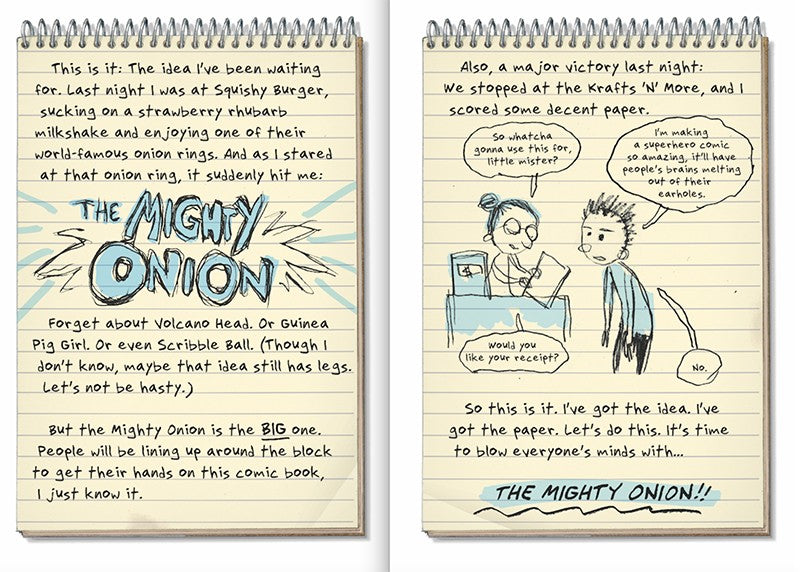 This is it: The idea I've been waiting
for. Last night I was at Squishy Burger,
sucking on a strawberry rhubarb
milkshake and enjoying one of their
world-famous onion rings. And as I stared
at that onion ring, it suddenly hit me:
THE MIGHTY
ONION
Forget about Volcano Head. Or Guinea
Pig Girl. Or even Scribble Ball. (Though I
don't know, maybe that idea still has legs.
Let's not be hasty.)
But the Mighty Onion is the BIG one.
People will be lining up around the block
to get their hands on this comic book,
I just know it.
Also, a major victory last night:
We stopped at the Krafts 'N' More, and I
scored some decent paper.
So whatcha
gonna use this for,
little mister?
I'm making
a superhero comic
so amazing, it'll have
people's brains melting
out of their
earholes.
$
Would you
like your receipt?
No.
So this is it. I've got the idea. I've
got the paper. Let's do this. It's time
to blow everyone's minds with...
THE MIGHTY ONION!!